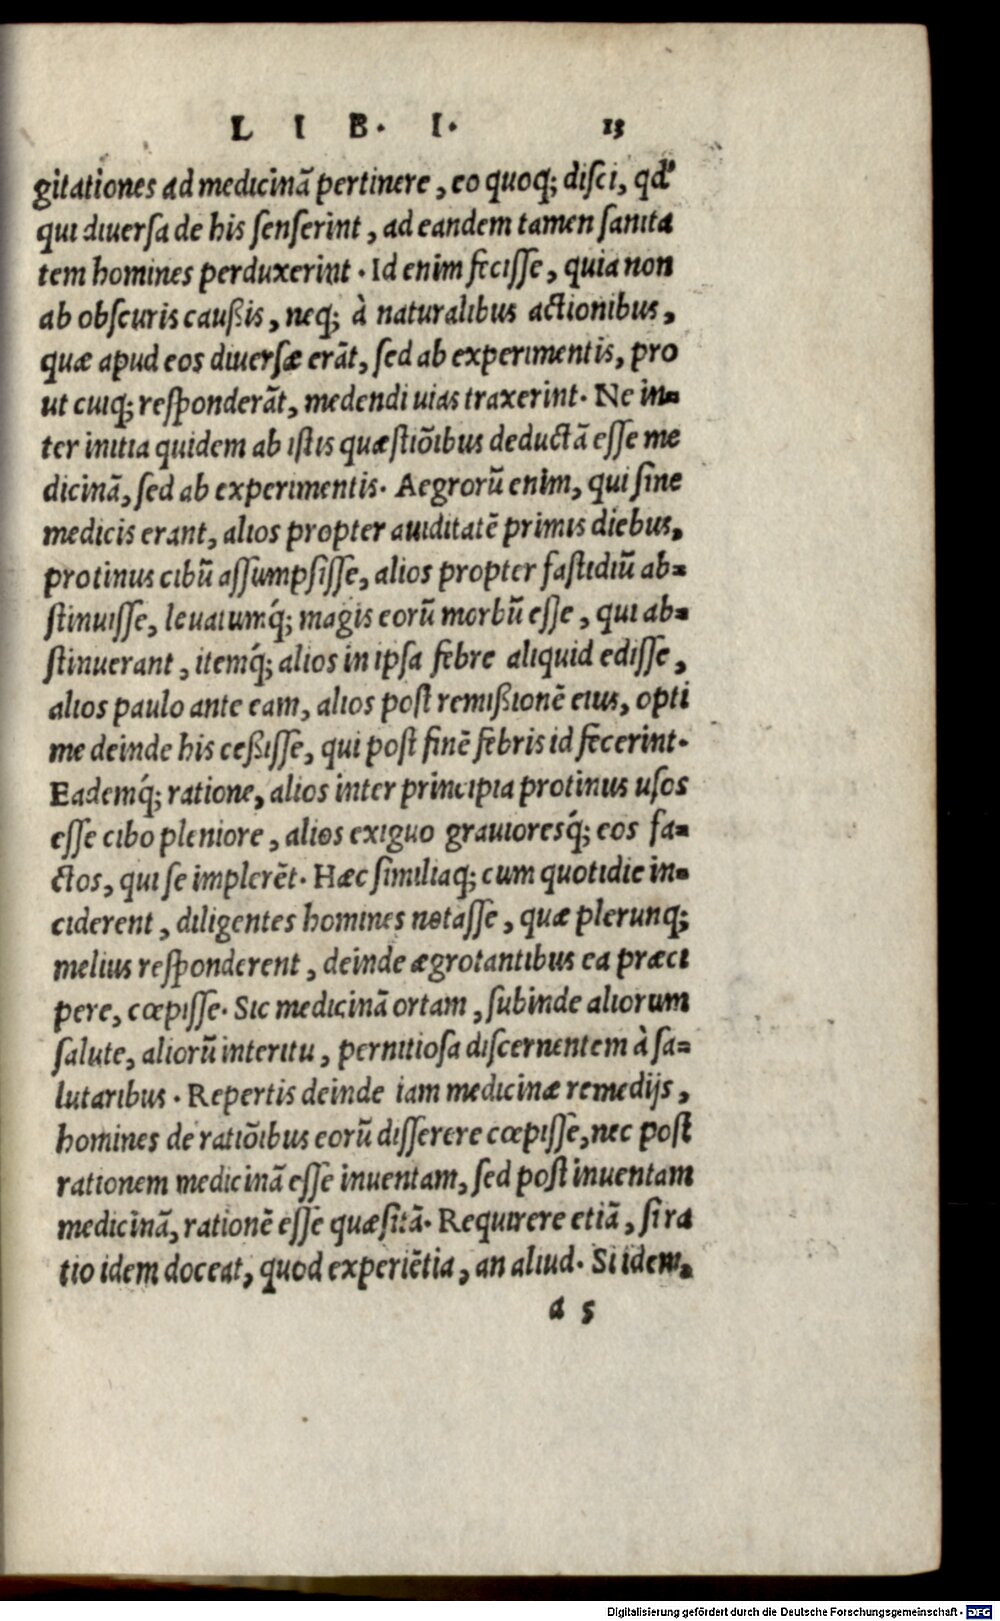 LIB. I. 13
gitationes ad medicinã pertinere, eo quoq; disci, qđ
qui diuersa de his senserint, ad eandem tamen sanita
tem homines perduxerint. Id enim fecisse, quia non
ab obscuris caußis, neq; à naturalibus actionibus,
quæ apud eos diuersæ erãt, sed ab experimentis, pro
ut cuiq; responderãt, medendi uias traxerint. Ne in=
ter initia quidem ab istis quæstiõibus deductã esse me
dicinã, sed ab experimentis. Aegrorũ enim, qui sine
medicis erant, alios propter auiditatẽ primis diebus,
protinus cibũ assumpsisse, alios propter fastidiũ ab=
stinuisse, leuatumq́; magis eorũ morbũ esse, qui ab=
stinuerant, itemq́; alios in ipsa febre aliquid edisse,
alios paulo ante eam, alios post remißionẽ eius, opti
me deinde his ceßisse, qui post finẽ febris id fecerint.
Eademq́; ratione, alios inter principia protinus usos
esse cibo pleniore, alios exiguo grauioresq́; eos fa=
ctos, qui se implerẽt. Hæc similiaq; cum quotidie in=
ciderent, diligentes homines notasse, quæ plerunq;
melius responderent, deinde ægrotantibus ea præci
pere, cœpisse. Sic medicinã ortam, subinde aliorum
salute, aliorũ interitu, pernitiosa discernentem à sa=
lutaribus. Repertis deinde iam medicinæ remedijs,
homines de ratiõibus eorũ disserere cœpisse, nec post
rationem medicinã esse inuentam, sed post inuentam
medicinã, rationẽ esse quæsitã. Requirere etiã, si ra
tio idem doceat, quod experiẽtia, an aliud. Si idem,
a 5
Digitalisierung gefördert durch die Deutsche Forschungsgemeinschaft - DFG